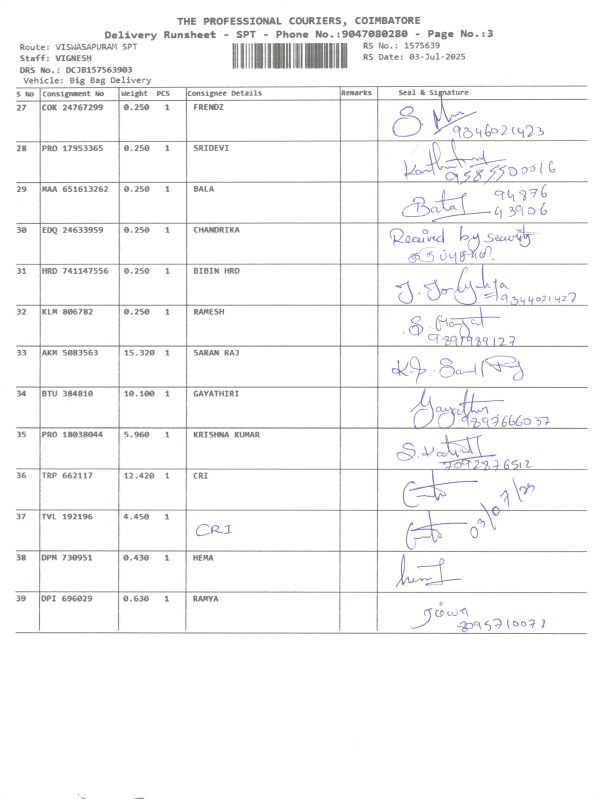 THE PROFESSIONAL COURIERS, COIMBATORE
Delivery Runsheet - SPT - Phone No.:9047080280 - Page No.:3
Route: VISWASAPURAM SPT
RS No.: 1575639
Staff: VIGNESH
RS Date: 03-Jul-2025
DRS No.: DCJB157563903
Vehicle: Big Bag Delivery
S No Consignment No Weight PCS Consignee Details Remarks Seal & Signature
27 COK 24767299 0.250 1 FRENDZ
9346021423
28 PRO 17953365 0.250 1 SRIDEVI
9585500016
29 MAA 651613262 0.250 1 BALA 94876
Bala 43906
30 EDQ 24633959 0.250 1 CHANDRIKA Received by security
31 HRD 741147556 0.250 1 BIBIN HRD
9344021427
32 KLM 806782 0.250 1 RAMESH
9897989127
33 AKM 5083563 15.320 1 SARAN RAJ
34 BTU 384810 10.100 1 GAYATHIRI Gayathri
9897666037
35 PRO 18038044 5.960 1 KRISHNA KUMAR
7092876512
36 TRP 662117 12.420 1 CRI
37 TVL 192196 4.450 1 CRI 03/07/25
38 DPM 730951 0.430 1 HEMA hema
39 DPI 696029 0.630 1 RAMYA